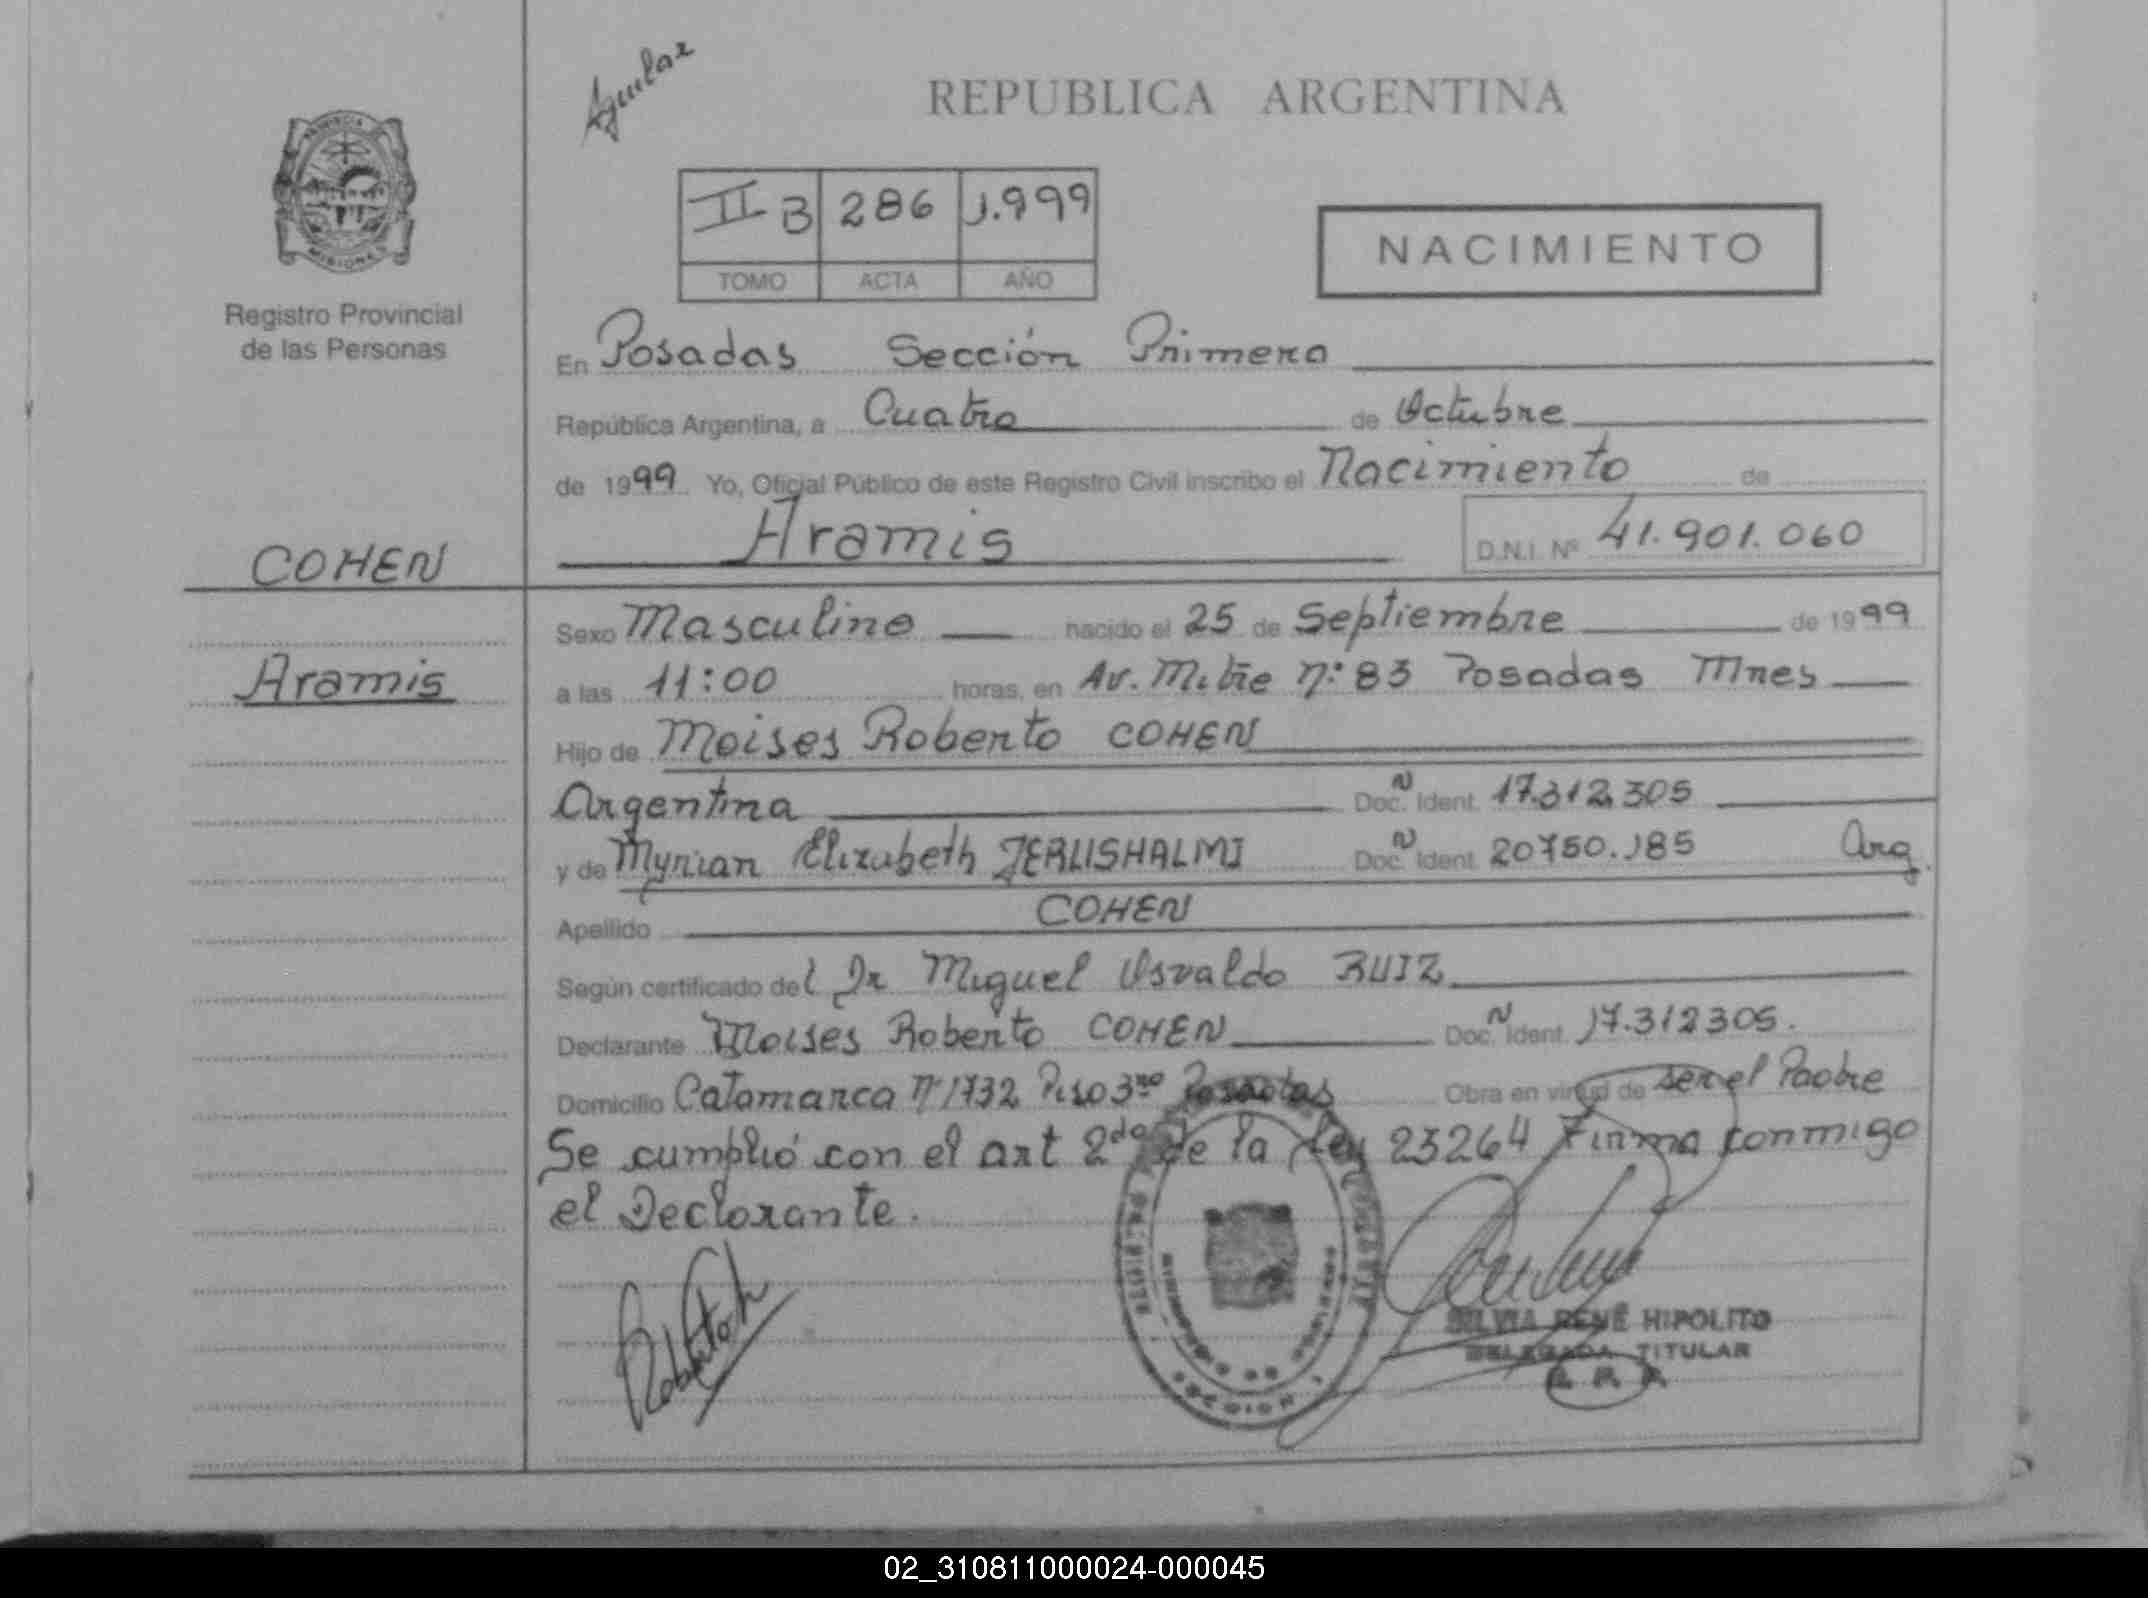 Aguilar
REPUBLICA ARGENTINA
PROVINCIA
MISIONES
II B 286 1.999
TOMO ACTA AÑO
NACIMIENTO
Registro Provincial
de las Personas
En Posadas Sección Primera
República Argentina, a Cuatro de Octubre
de 1999 Yo, Oficial Público de este Registro Civil inscribo el Nacimiento de
Aramis D.N.I. Nº 41.901.060
COHEN
Aramis
Sexo Masculino nacido el 25 de Septiembre de 1999
a las 11:00 horas, en Av. Mitre n:º 83 Posadas Mnes
Hijo de Moises Roberto COHEN
Argentina Doc. N Ident. 17.312.305
y de Myrian Elizabeth JERUSHALMI Doc. N Ident. 20750.185 Arg.
Apellido COHEN
Según certificado del Dr Miguel Osvaldo RUIZ
Declarante Moises Roberto COHEN Doc. N Ident. 17.312305.
Domicilio Catamarca nº 1732 Piso 3ro Posadas Obra en virtud de ser el Padre
Se cumplió con el art 2do de la ley 23264 Firma conmigo
el Declarante.
SILVIA RENÉ HIPOLITO
DELEGADA TITULAR
02_310811000024-000045